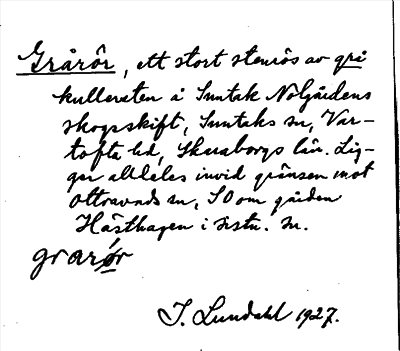 Grårör, ett stort stenrös av grå
kullersten å Suntak Nolgårdens
skogsskift, Suntaks sn, Var-
tofta hd, Skaraborgs län. Lig-
ger alldeles invid gränsen mot
Ottravads sn, SO om gården
Hästhagen i sistn. sn.
grarør
I. Lundahl 1927.